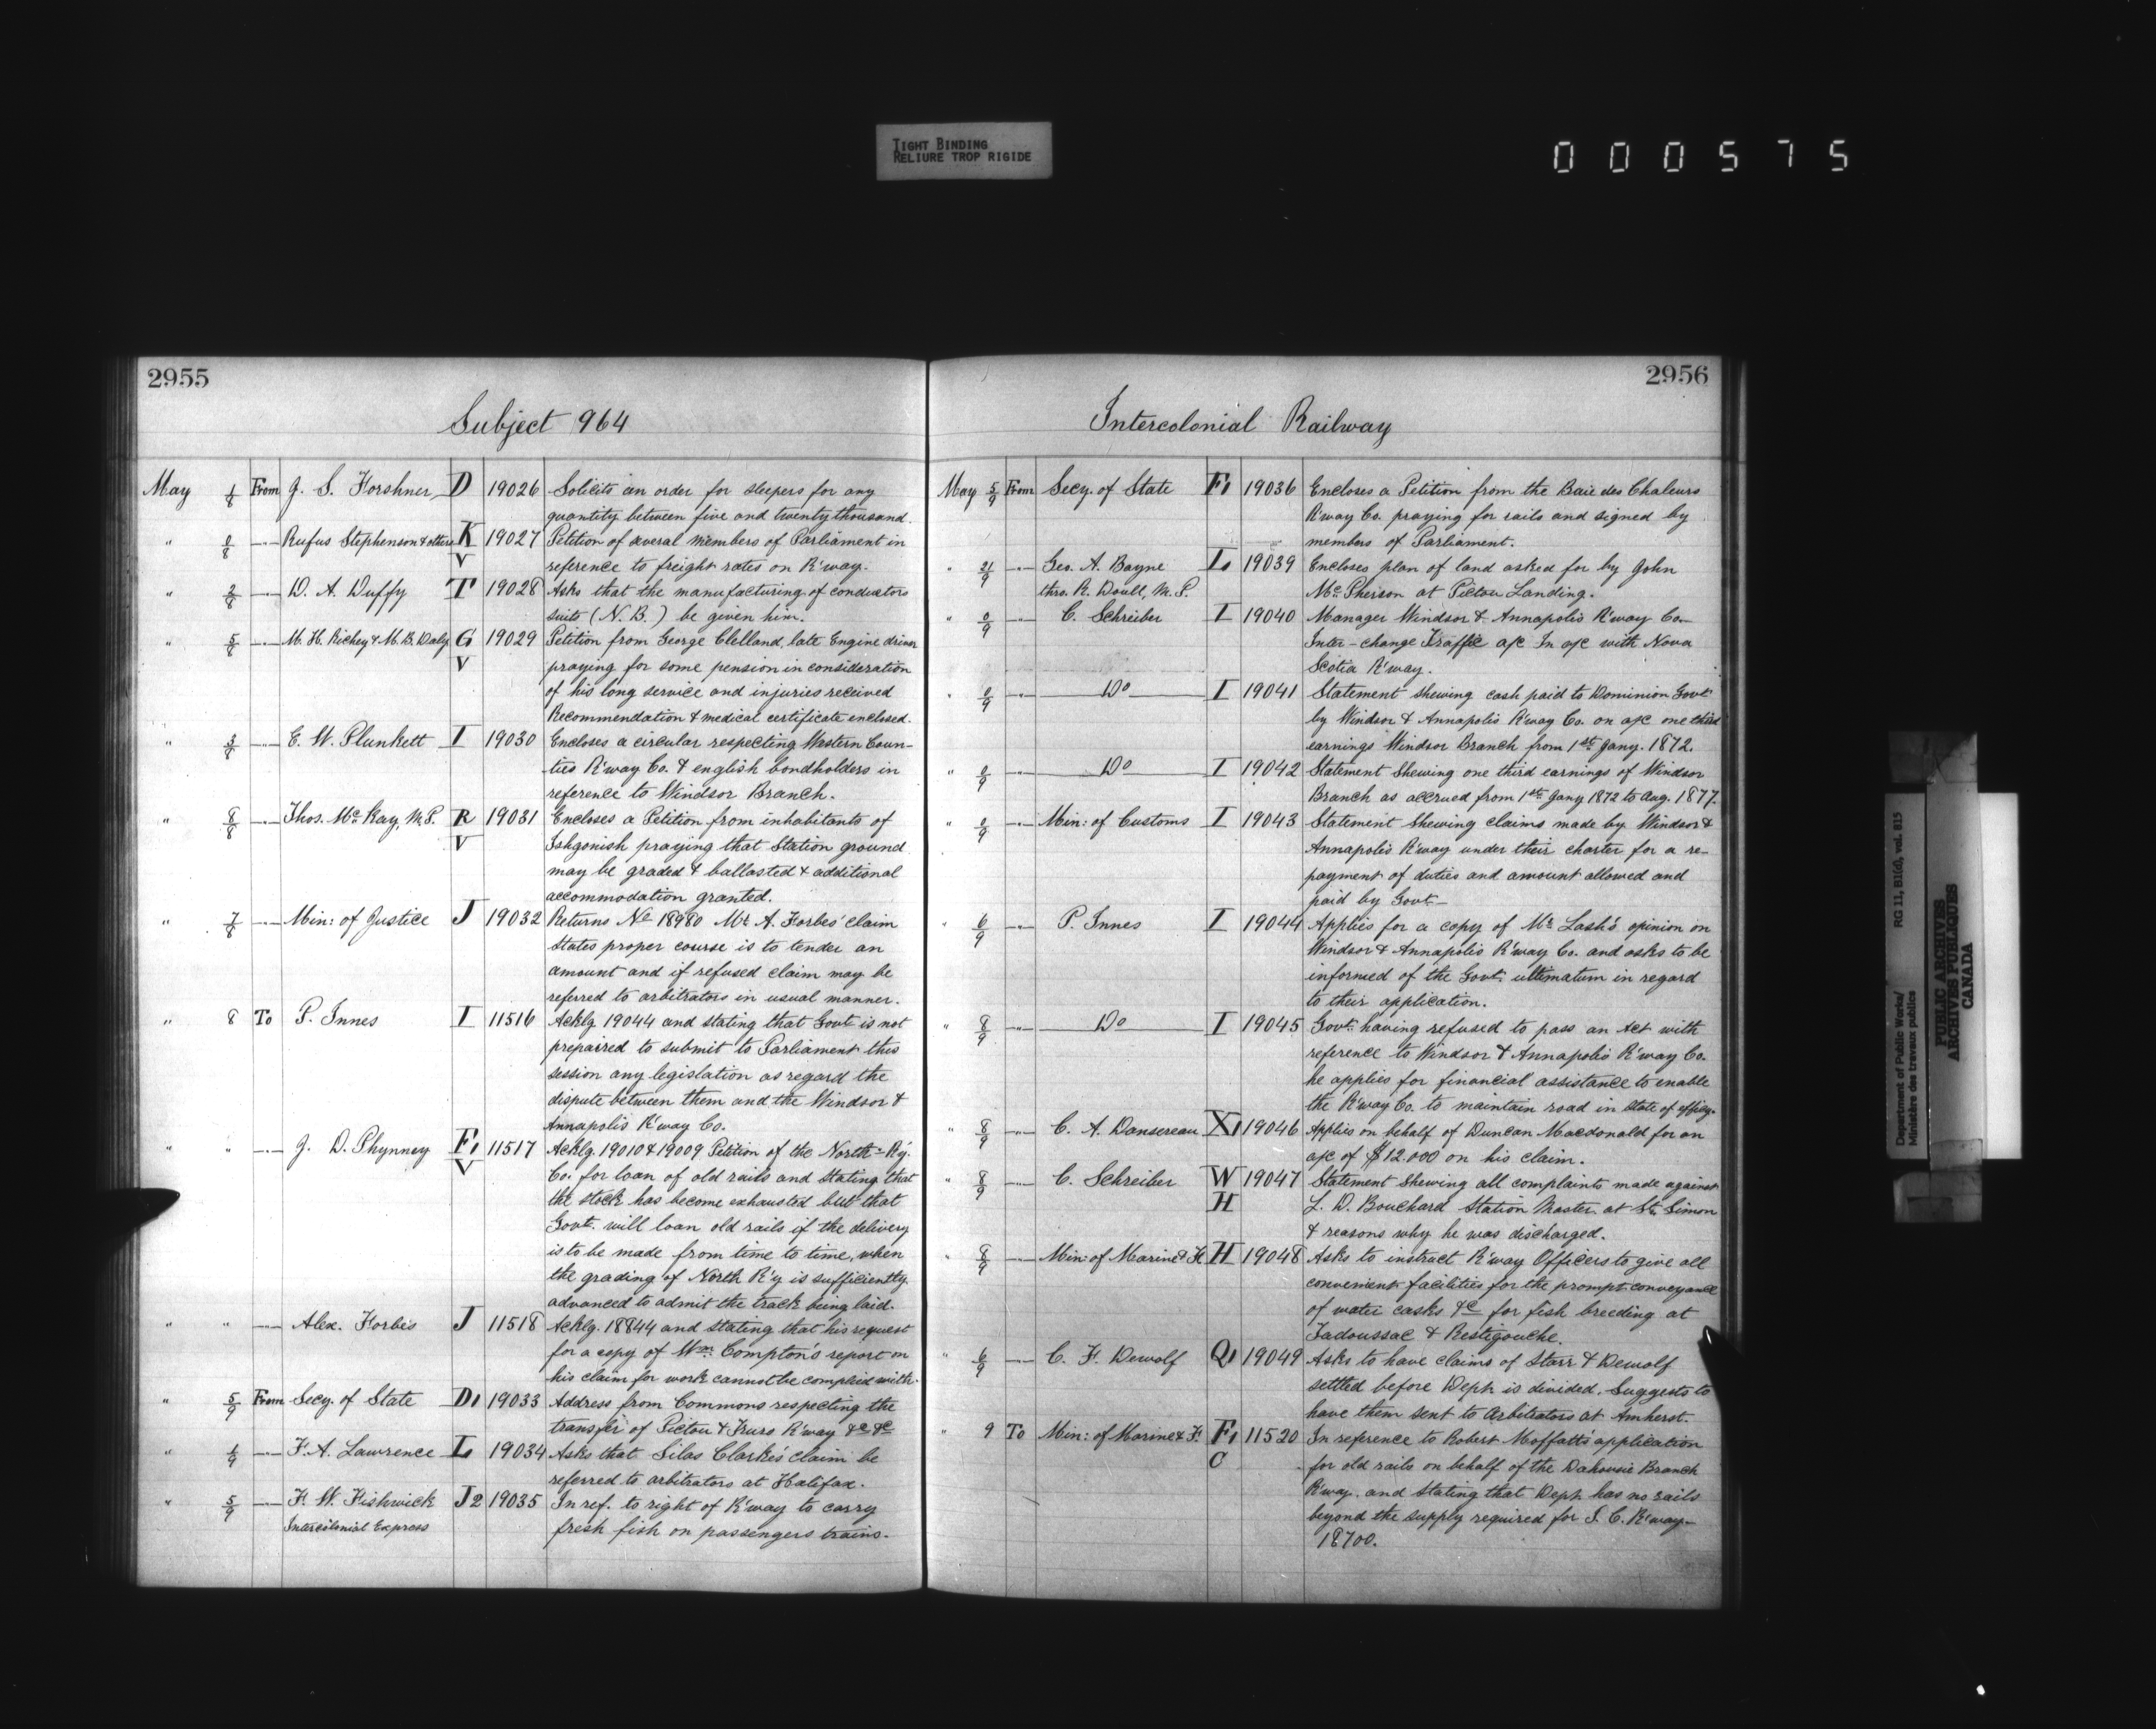 TIGHT BINDING
RELIURE TROP RIGIDE
000575
2955
Subject 964
May 1/8 From J. S. Forshner D 19026 Solicits an order for sleepers for any
quantity between five and twenty thousand.
" 0/8 —"— Rufus Stephenson & others K 19027 Petition of several members of Parliament in
V reference to freight rates on R'way.
" 2/8 —"— D. A. Duffy T 19028 Asks that the manufacturing of conductors
suits (N.B.) be given him.
" 5/8 —"— M. H. Richey & M. B. Daly G 19029 Petition from George Clelland, late Engine driver
V praying for some pension in consideration
of his long service and injuries received
Recommendation & medical certificate enclosed.
" 3/8 —"— E. W. Plunkett I 19030 Encloses a circular respecting Western Coun-
ties R'way Co. & english bondholders in
reference to Windsor Branch.
" 8/8 —"— Thos. McKay, M.P. R 19031 Encloses a Petition from inhabitants of
V Ishgonish praying that Station ground
may be graded & ballasted & additional
accommodation granted.
" 7/8 —"— Min: of Justice J 19032 Returns No 18980 Mr A. Forbes' claim
States proper course is to tender an
amount and if refused claim may be
referred to arbitrators in usual manner.
" 8 To P. Innes I 11516 Acklg 19044 and stating that Govt is not
prepaired to submit to Parliament this
session any legislation as regard the
dispute between them and the Windsor &
Annapolis R'way Co.
" " —"— J. D. Phynney F1 11517 Acklg. 19010 & 19009 Petition of the North R'y.
V Co. for loan of old rails and stating that
the stock has become exhausted but that
Govt. will loan old rails if the delivery
is to be made from time to time, when
the grading of North R'y is sufficiently
advanced to admit the track being laid.
" " —"— Alex. Forbes J 11518 Acklg. 18844 and stating that his request
for a copy of Wm. Compton's report on
his claim for work cannot be complied with.
" 5/9 From Secy. of State D1 19033 Address from Commons respecting the
transfer of Pictou & Truro R'way &c &c
" 1/9 —"— F. A. Lawrence L 19034 Asks that Silas Clarke's claim be
referred to arbitrators at Halifax.
" 5/9 —"— F. W. Fishwick J2 19035 In ref. to right of R'way to carry
Intercolonial Express fresh fish on passengers trains.
2956
Intercolonial Railway
May 5/9 From Secy. of State F1 19036 Encloses a Petition from the Baie des Chaleurs
R'way Co. praying for rails and signed by
members of Parliament.
" 21/9 —"— Geo. A. Bayne L 19039 Encloses plan of land asked for by John
thro. R. Doull, M.P. McPherson at Pictou Landing.
" 0/9 —"— C. Schreiber I 19040 Manager Windsor & Annapolis R'way Co.
Inter-change Traffic a/c In a/c with Nova
Scotia R'way.
" 0/9 —"— Do I 19041 Statement shewing cash paid to Dominion Govt
by Windsor & Annapolis R'way Co. on a/c one third
earnings Windsor Branch from 1st Jany. 1872.
" 0/9 —"— Do I 19042 Statement Shewing one third earnings of Windsor
Branch as accrued from 1st Jany 1872 to Aug. 1877.
" 0/9 —"— Min: of Customs I 19043 Statement Shewing claims made by Windsor &
Annapolis R'way under their charter for a re-
payment of duties and amount allowed and
paid by Govt—
" 6/9 —"— P. Innes I 19044 Applies for a copy of Mr Lash's opinion on
Windsor & Annapolis R'way Co. and asks to be
informed of the Govt. ultimatum in regard
to their application.
" 8/9 —"— Do I 19045 Govt. having refused to pass an Act with
reference to Windsor & Annapolis R'way Co.
he applies for financial assistance to enable
the R'way Co. to maintain road in state of efficy.
" 8/9 —"— C. A. Dansereau X1 19046 Applies on behalf of Duncan Macdonald for an
a/c of $12.000 on his claim.
" 8/9 —"— C. Schreiber W 19047 Statement Shewing all complaints made against
H L. D. Bouchard Station Master at St. Simon
& reasons why he was discharged.
" 8/9 —"— Min: of Marine & F. H 19048 Asks to instruct R'way Officers to give all
convenient facilities for the prompt conveyance
of water casks &c for fish breeding at
Tadoussac & Restigouche.
" 6/9 —"— C. F. Dewolf Q1 19049 Asks to have claims of Starr & Dewolf
settled before Dept is divided. Suggests to
have them sent to Arbitrators at Amherst.
" 9 To Min: of Marine & F. F1 11520 In reference to Robert Moffatt's application
C for old rails on behalf of the Dahousie Branch
R'way. and stating that Dept. has no rails
beyond the supply required for I. C. R'way—
18700.
Department of Public Works/ RG 11, B1(d), vol. 815
Ministère des travaux publics
PUBLIC ARCHIVES
ARCHIVES PUBLIQUES
CANADA